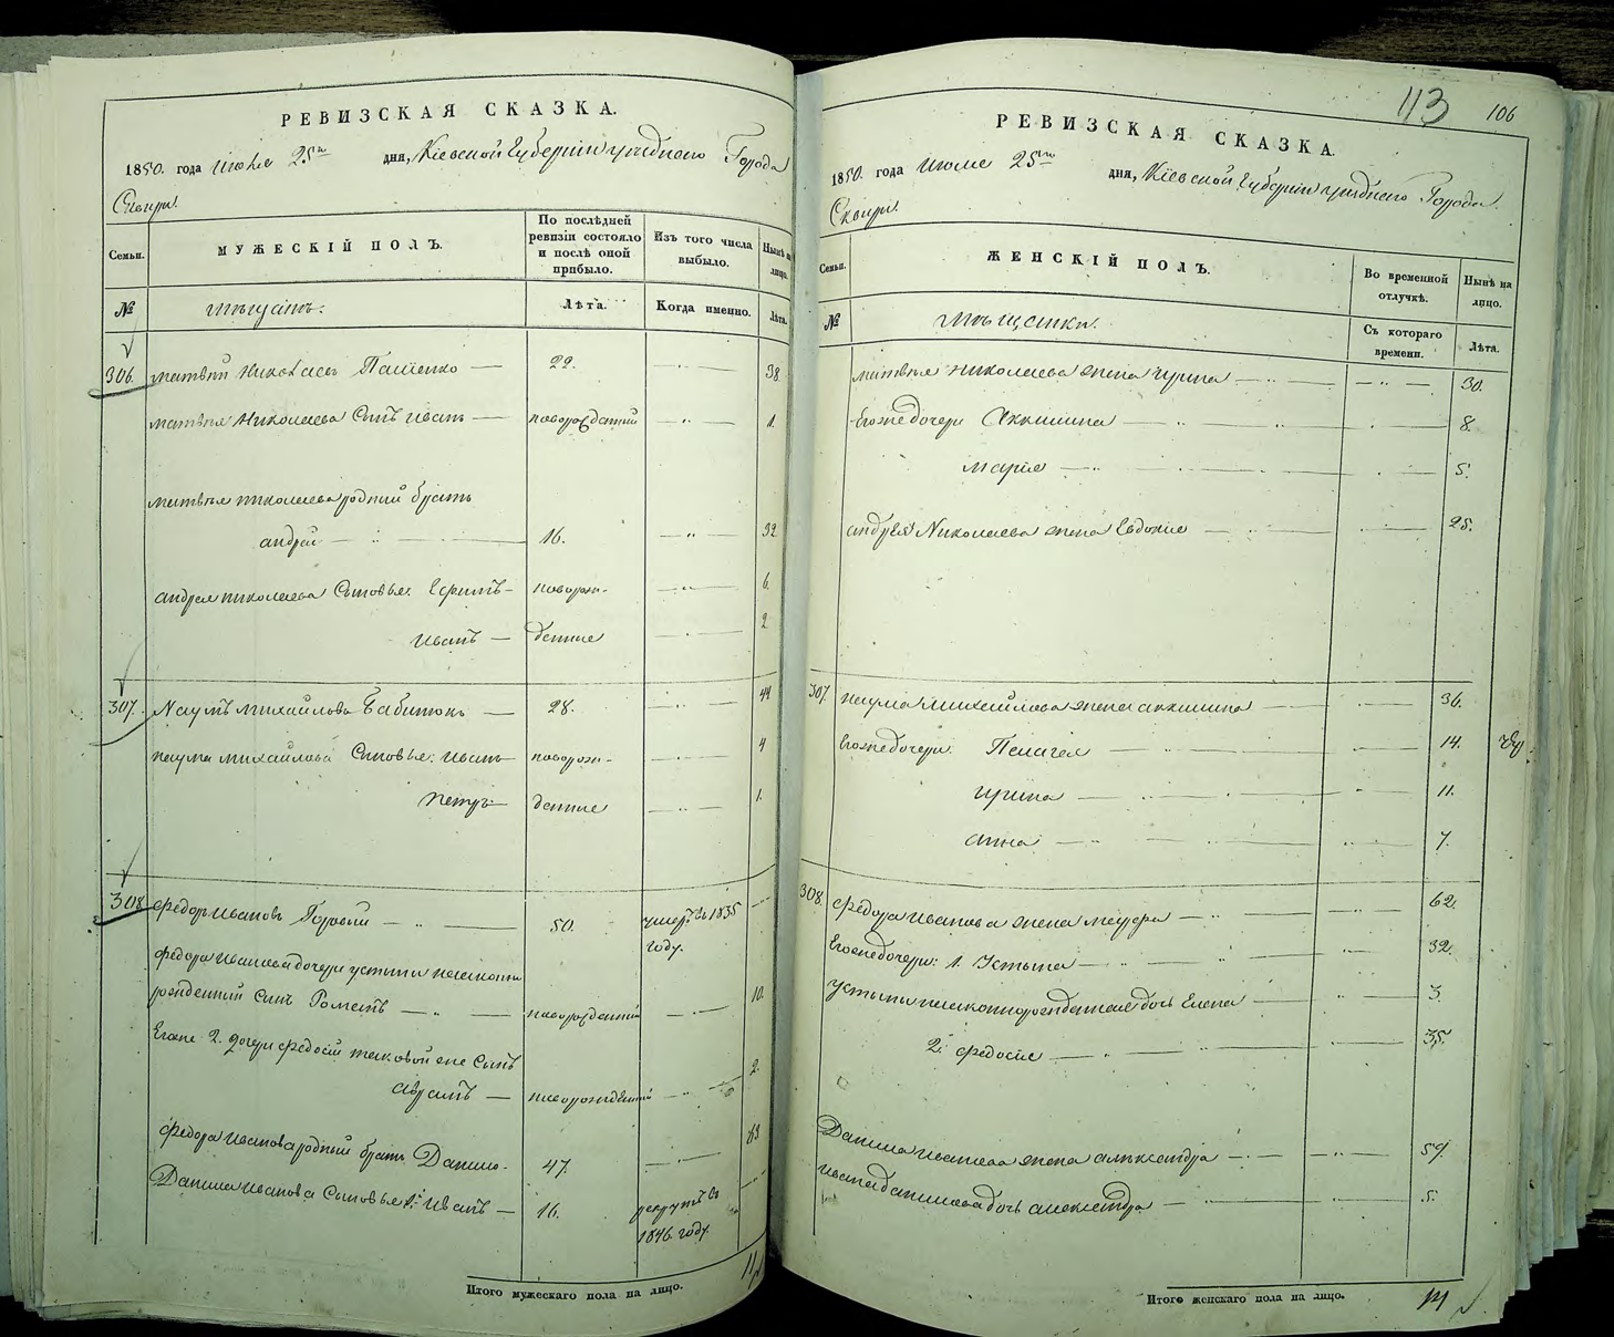 РЕВИЗСКАЯ СКАЗКА.
1850. года Июля 25го дня, Кіевской Губерніи уѣзднаго Города
Сквиры.
Семьи.
МУЖЕСКІЙ ПОЛЪ.
По послѣдней ревизіи состояло и послѣ оной прибыло.
Изъ того числа выбыло.
Нынѣ на лицо.
№
мѣщанъ.
Лѣта.
Когда именно.
Лѣта.
306. Матвѣй Николаевъ 22. 38.
Матвѣя Николаева Сынъ Иванъ новорожденный 1.
Матвѣя николаева родный братъ
андрей 16. 32
андрея николаева Сыновья: Ефимъ новорож- 6.
Иванъ денные 2
307. Наумъ михайловъ Бабинюкъ 28. 44
наума михайлова Сыновья: Иванъ новорож- 4
петръ денные 1.
308 федоръ Ивановъ 50. умеръ въ 1835
году.
федора Иванова дочери устыны незаконно
рожденный Сынъ Романъ новорожденный 10.
Егоже 2. дочери федосіи таковой же Сынъ
Аврамъ новорожденный 2.
федора Иванова родный братъ Данило 47. 63
Данила Иванова Сыновья 1. Иванъ 16. рекрутъ въ
1846 году.
Итого мужескаго пола на лицо. 11
113 106
РЕВИЗСКАЯ СКАЗКА.
1850. года Июля 25го дня, Кіевской Губерніи уѣзднаго Города
Сквиры.
Семьи.
ЖЕНСКІЙ ПОЛЪ.
Во временной отлучкѣ.
Нынѣ на лицо.
№
Мѣщанки.
Съ котораго времени.
Лѣта.
Матвѣя Николаева жена Ирина 30.
Егоже дочери Акилина 8.
марія 5.
андрея Николаева жена Евдокія 25.
307 наума Михайлова жена акилина 36.
Егоже дочери: Пелагея 14.
ирина 11.
анна 7.
308. федора Иванова жена 62.
Егоже дочери: 1. Устына 32.
Устыны незаконнорожденная дочь Елена 3.
2. федосія 35.
Данила Иванова жена александра 59.
Ивана данилова дочь александра 5.
Итого женскаго пола на лицо. 14